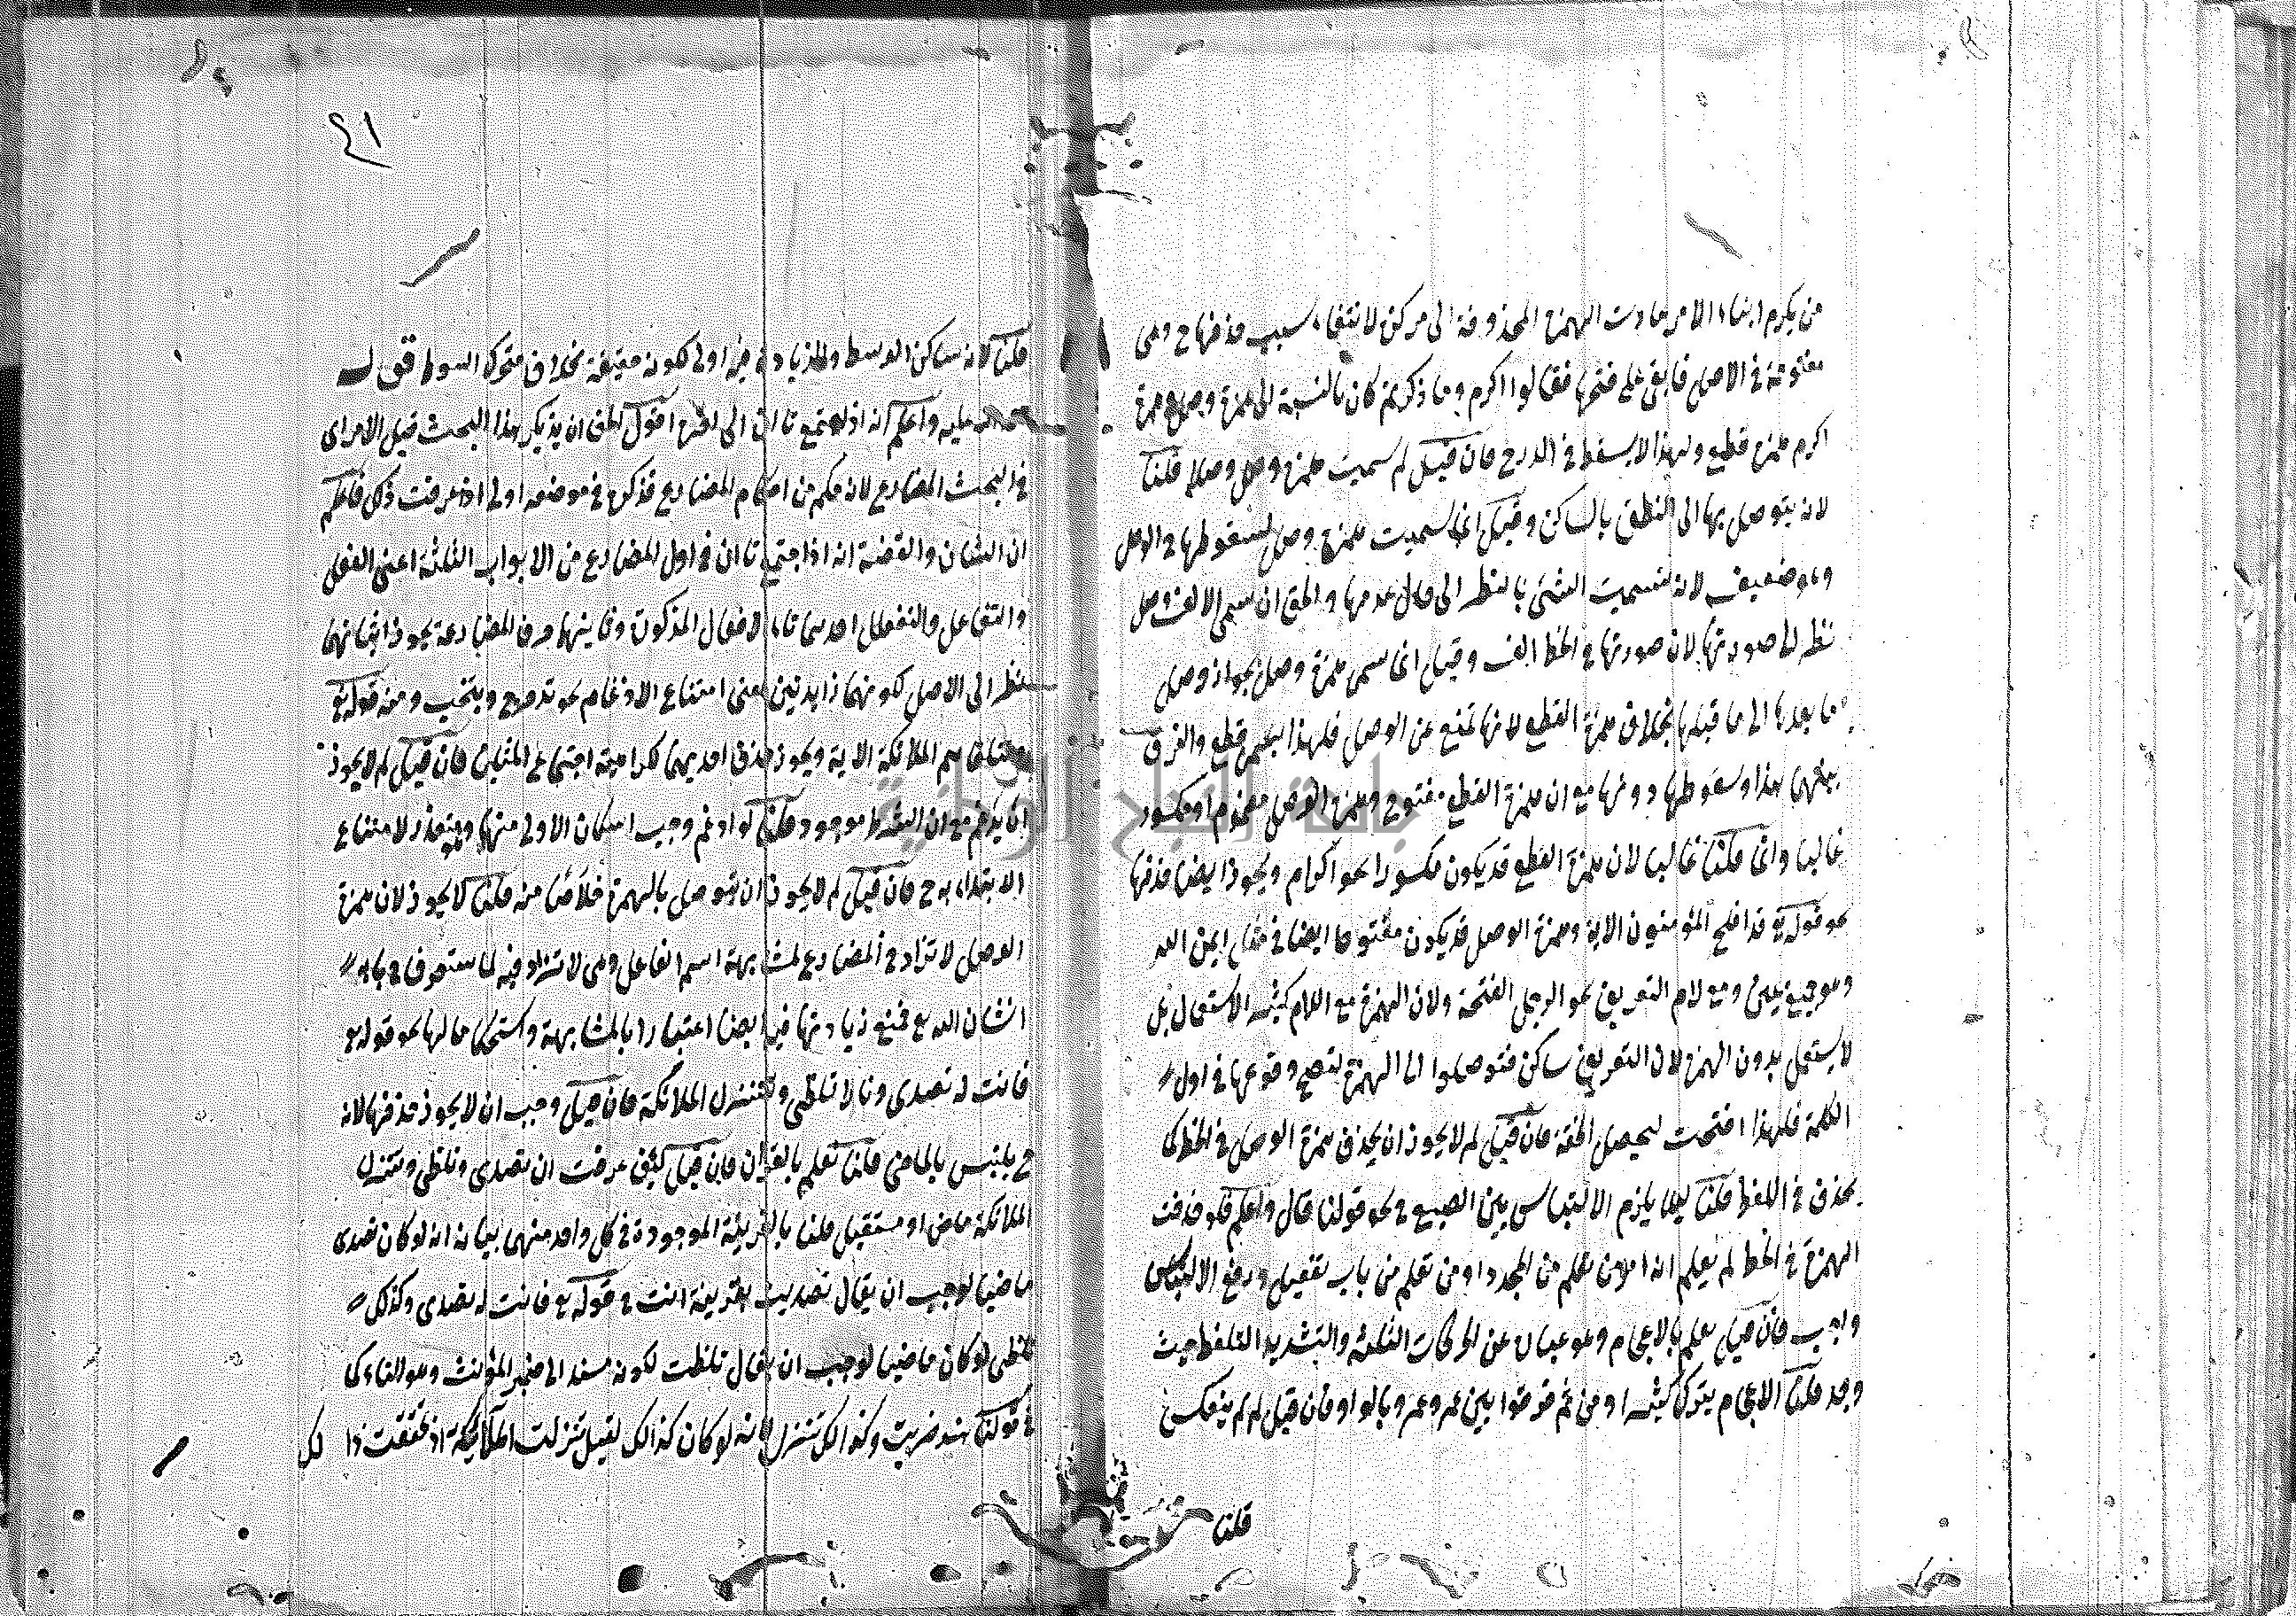 من يكرم ابتداء الامر عادت الهمزة المحذوفة الى مركزه لانتفاء سبب حذفها ح وهى
مفتوحة فى الاصل فابقى على فتحها فقالوا اكرم وما ذكرتم كان بالنسبة الى همزة وصل وهمزة
اكرم همزة قطع ولهذا لا يسقط فى الدرج فان قيل لم سميت همزة وصل وصلا قلنا
لانه يتوصل بها الى النطق بالساكن وقيل انما سميت همزة وصل لسقوطها فى الوصل
وهو ضعيف لانه تسميت الشئ بالنظر الى حال عدمها والحق ان يسمى الالف وصل
نظر الى صورتها لان صورتها فى الخط الف وقيل انما سمى همزة وصل بجواز وصل
ما بعدها الى ما قبلها بخلاف همزة القطع لانها تمنع عن الوصل فلهذا سمى قطع والفرق
بينهما هذا وسقوطها دونها مع ان همزة القطع مفتوح وهمزة الوصل مضموم او مكسور
غالبا وانما قلنا غالبا لان همزة القطع قد يكون مكسورا نحو اكرام ويجوز ايضا حذفها
نحو قوله تع قد افلح المؤمنون الاية وهمزة الوصل قد يكون مفتوحا ايضا فى مثل ايمن الله
وهو جمع يمين ومع لام التعريف نحو الرجل الفتحة ولان الهمزة مع اللام كثير الاستعمال بل
لا يستعمل بدون الهمزة لان التعريف ساكن فتوصلوا الى الهمزة لتصح وقوعها فى اول
الكلمة فلهذا افتحت ليحصل الخفة فان قيل لم لا يجوز ان يحذف همزة الوصل فى الخط كما
يحذف فى اللفظ قلنا ليلا يلزم الالتباس بين الصيغ فى نحو قولنا قال واعلم فلو حذفت
الهمزة فى الخط لم يعلم انه امر من علم من المجرد او من تعلم من باب تفعيل ورفع الالتباس
واجب فان قيل يعلم بالاعجام وهو عبارة عن الحركات الثلثة والتشديد التلفظ حيث
وجد قلنا الاعجام يترك كثيرا ومن ثم فرقوا بين عمر وعمرو بالواو فان قيل لم لم ينعكس
قلنا
٢١
قلنا لانه ساكن الوسط والزيادة فيه اولى لكونه خفيفة بخلاف متحرك الوسط قوله
عليه واعلم انه اذا اجتمع تاان الى اخره اقول الحق ان يذكر هذا البحث قبل الامر اى
فى البحث المضارع لانه حكم من احكام المضارع فذكره فى موضعه اولى اذا عرفت ذلك فاعلم
ان الشان والقضة انه اذا اجتمع تاان فى اول المضارع من الابواب الثلثة اعنى التفعل
والتفاعل والتفعلل احدهما تاء الافعال المذكورة وثانيتها حرف المضارعة يجوز اثباتهما
نظر الى الاصل لكونهما زايدتين بمعنى امتناع الادغام نحو تدحرج ويتجنب ومنه قوله تع
وتتلقاهم الملائكة الاية ويجوز حذف احديهما كراهية اجتماع المثلين فان قيل لم لا يجوز
ان يدغم مع ان الشرط موجود قلنا لو ادغم وجب اسكان الاولى منهما ويتعذر لامتناع
الابتداء به ح فان قيل لم لا يجوز ان يتوصل بالهمزة خلاصا منه قلنا لا يجوز لان همزة
الوصل لا تزاد فى المضارع لمشابهة اسم الفاعل وهى لا تزاد فيه لما ستعرف فى بابه
انشان الله تع فمنع زيادتها فيه ايضا اعتبارا بالمشابهة واستحكا ما لها نحو قوله تع
فانت له تصدى ونارا تلظى وتنزل الملائكة فان قيل وجب ان لا يجوز حذفها لانه
ح يلتبس بالماضى قلنا تعلم بالقراين فان قيل كيف عرفت ان تصدى وتلظى وتنزل
الملائكة ماض او مستقبل قلنا بالقرينة الموجودة فى كل واحد منهما بيانه انه لو كان تصدى
ماضيا لوجب ان يقال تصديت بقرينة انت فى قوله تع فانت له تصدى وكذلك
تلظى لو كان ماضيا لوجب ان يقال تلظت لكونه مسندا الى ضمير المؤنث وهو التاء كما
فى قولنا هند ضربت وكذالك تنزل لانه لو كان كذالك لقيل تنزلت الملائكة اذ تحققت ذالك